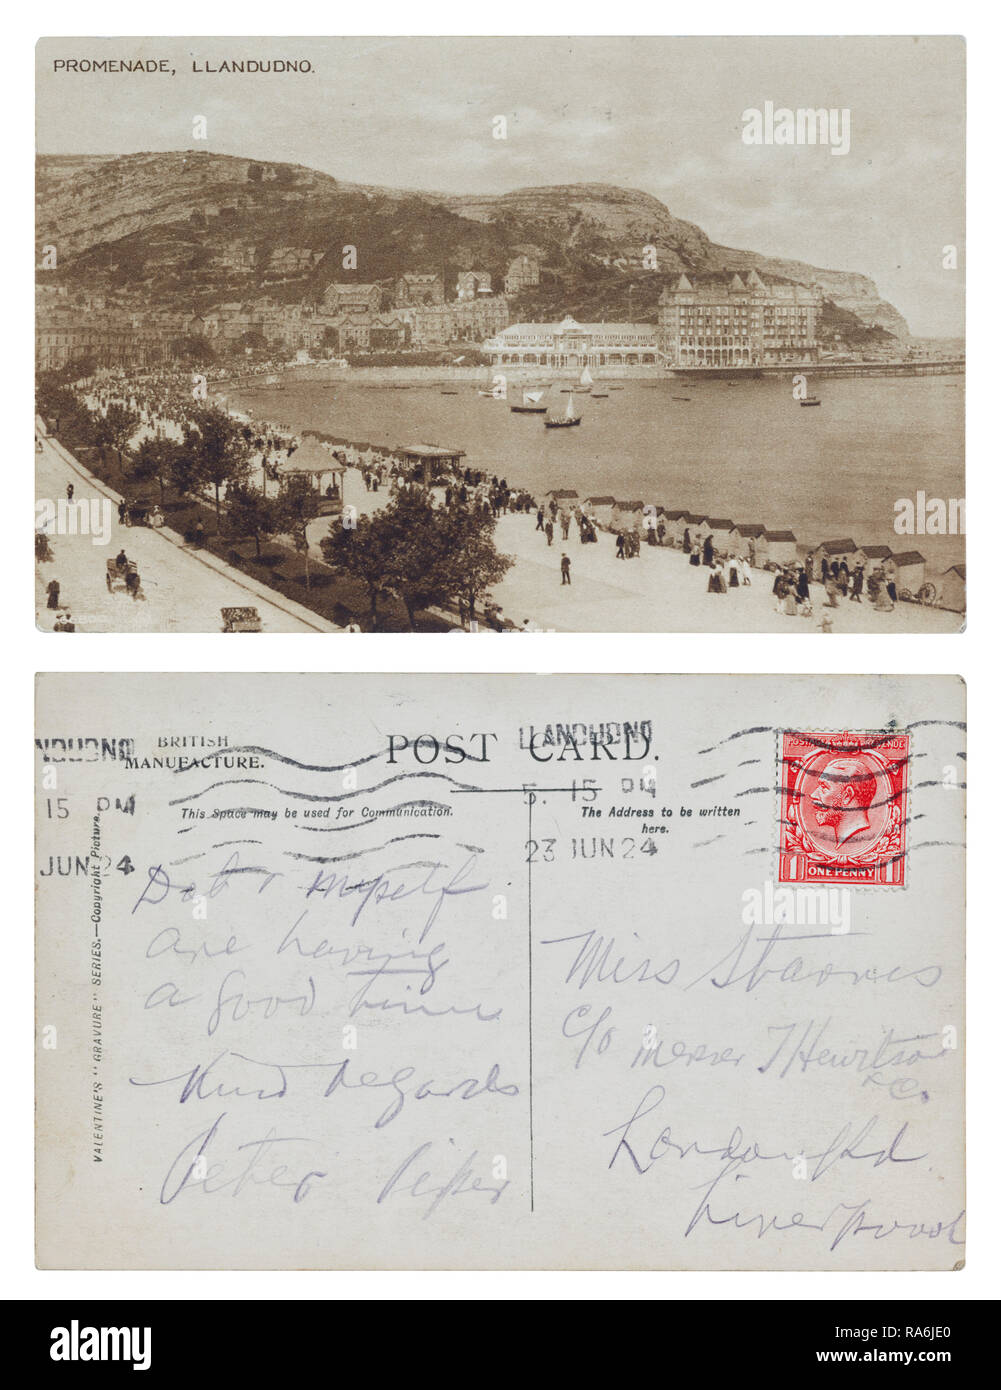 PROMENADE, LLANDUDNO.
BRITISH
MANUFACTURE.
POST CARD.
This Space may be used for Communication.
The Address to be written
here.
VALENTINE'S "GRAVURE" SERIES.—Copyright Picture.
NDUDNO
15 PM
JUN 24
LLANDUDNO
5. 15 PM
23 JUN 24
POSTAGE REVENUE
1 ONE PENNY 1
& myself
are having
a good time
Kind regards
Peter Piper
Miss
c/o Messrs T Hewitson
& Co.
London Rd
Liverpool
alamy
a
alamy
Image ID: RA6JE0
www.alamy.com